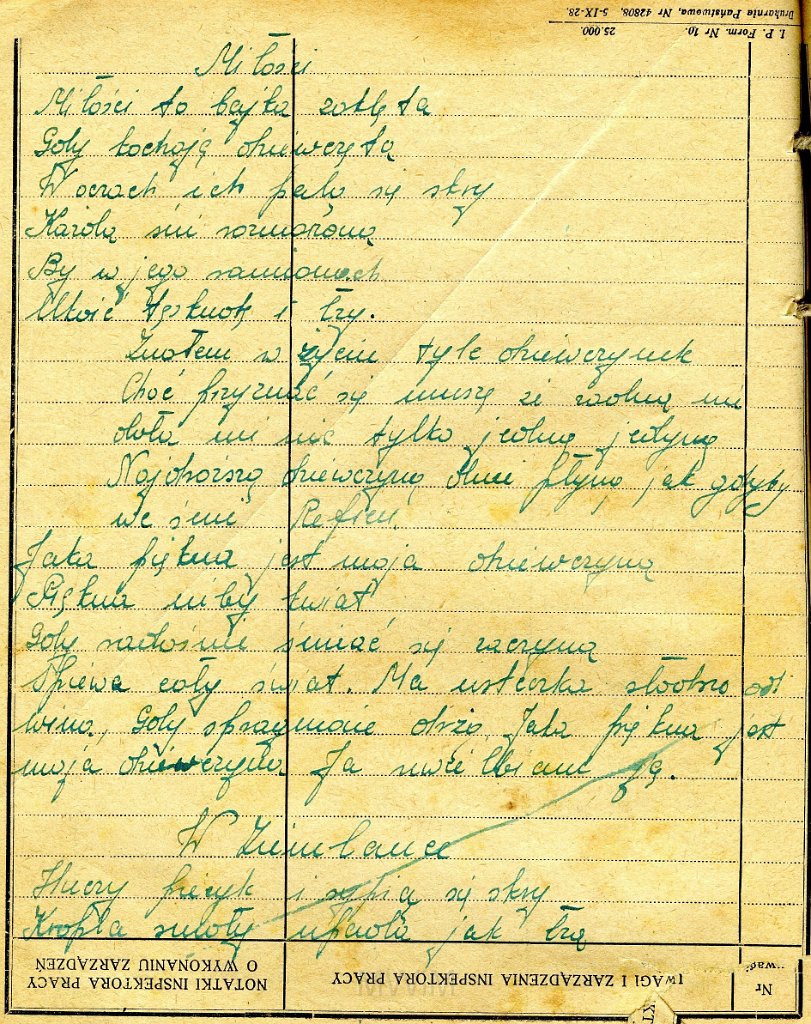 I. P. Form. Nr 10. 25.000.
Drukarnia Państwowa, Nr 42808, 5-IX-28.
Miłości
Miłości to bajka zaklęta
Gdy kochają dziewczęta
W oczach ich palą się skry
Każda śni rozmarzona
By w jego ramionach
Ukoić tęsknotę i łzy.
Znałem w życiu tyle dziewczynek
Choć przyznać się muszę że żadna mi
dała mi nie tylko jedną jedyną
Najdroższą dziewczyną dnie płyną jak gdyby
we śnie Refren.
Jaka piękna jest moja dziewczyna
Piękna niby kwiat
Gdy radośnie śmiać się zaczyna
Śpiewa cały świat. Ma usteczka słodsze od
wina, Gdy spragnione drżą, Jaka piękna jest
moja dziewczyna Ja uwielbiam ją.
W Ziemiance
Huczy piecyk i sypią się skry
Kropla smoły upadła jak łzą
NOTATKI INSPEKTORA PRACY
O WYKONANIU ZARZĄDZEŃ
UWAGI I ZARZĄDZENIA INSPEKTORA PRACY
Nr
uwagi